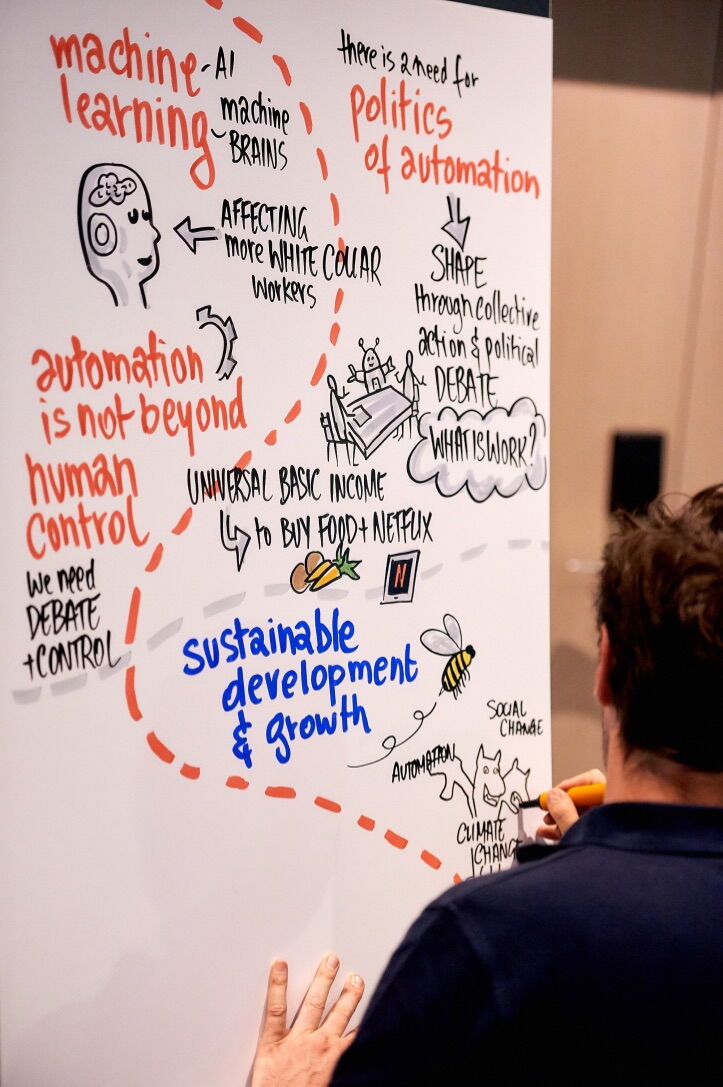 machine
learning
- AI
machine
BRAINS
AFFECTING
more WHITE COLLAR
workers
automation
is not beyond
human
control
we need
DEBATE
+CONTROL
there is a need for
politics
of automation
SHAPE
through collective
action & political
DEBATE
WHAT IS WORK?
UNIVERSAL BASIC INCOME
to BUY FOOD + NETFLIX
N
sustainable
development
& growth
SOCIAL
CHANGE
AUTOMATION
CLIMATE
CHANGE